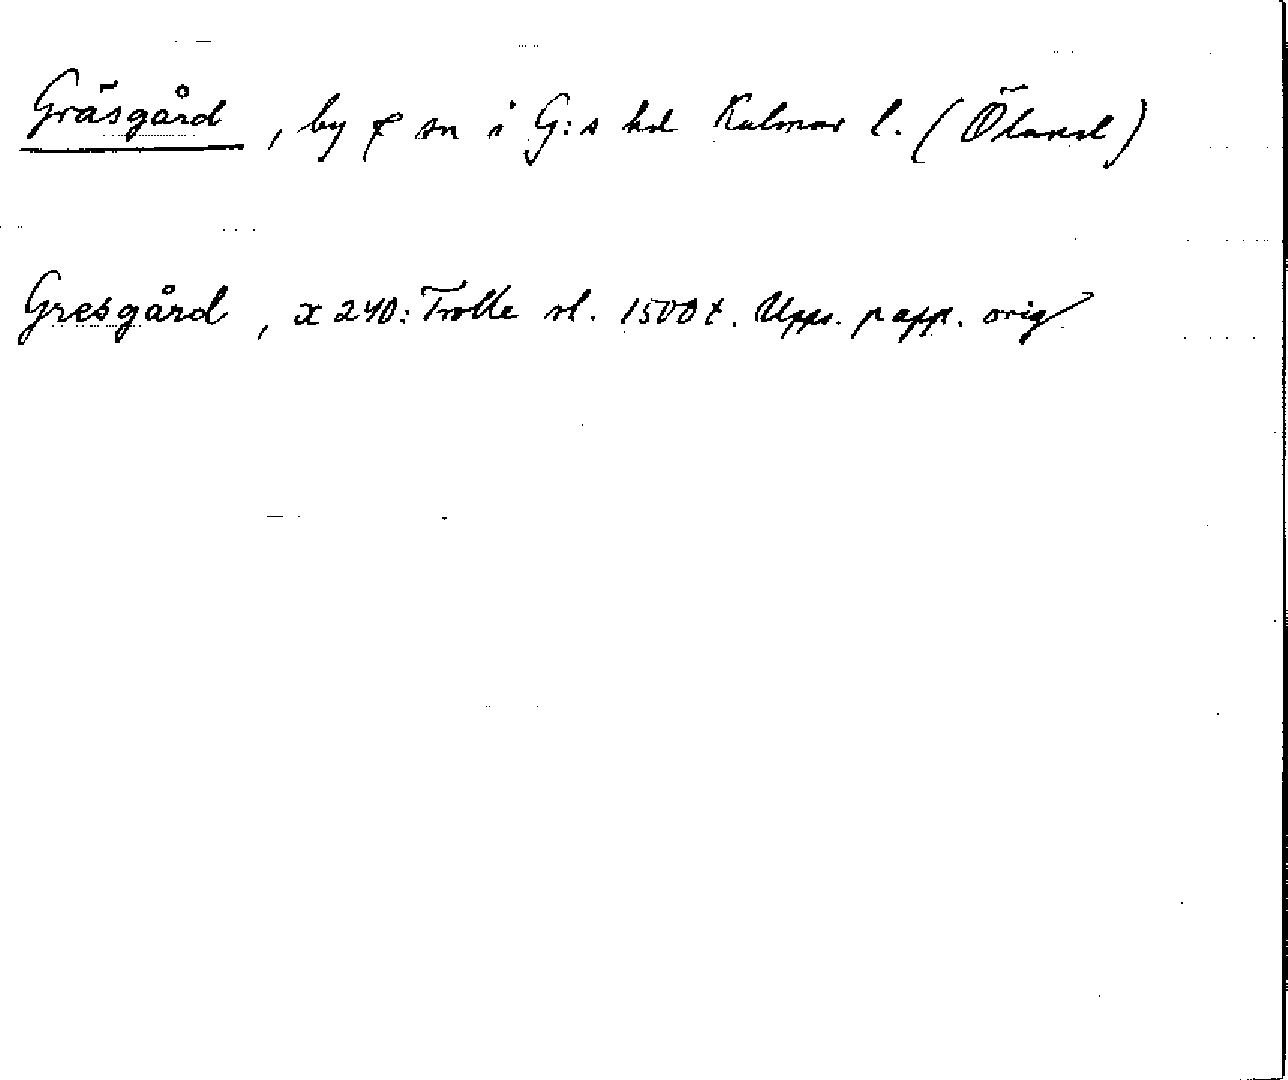 Gräsgård, by & sn i G:s hd Kalmar l. (Öland)
Gresgård, x 240: Trolle sl. 1500 t. Upps. papp. orig